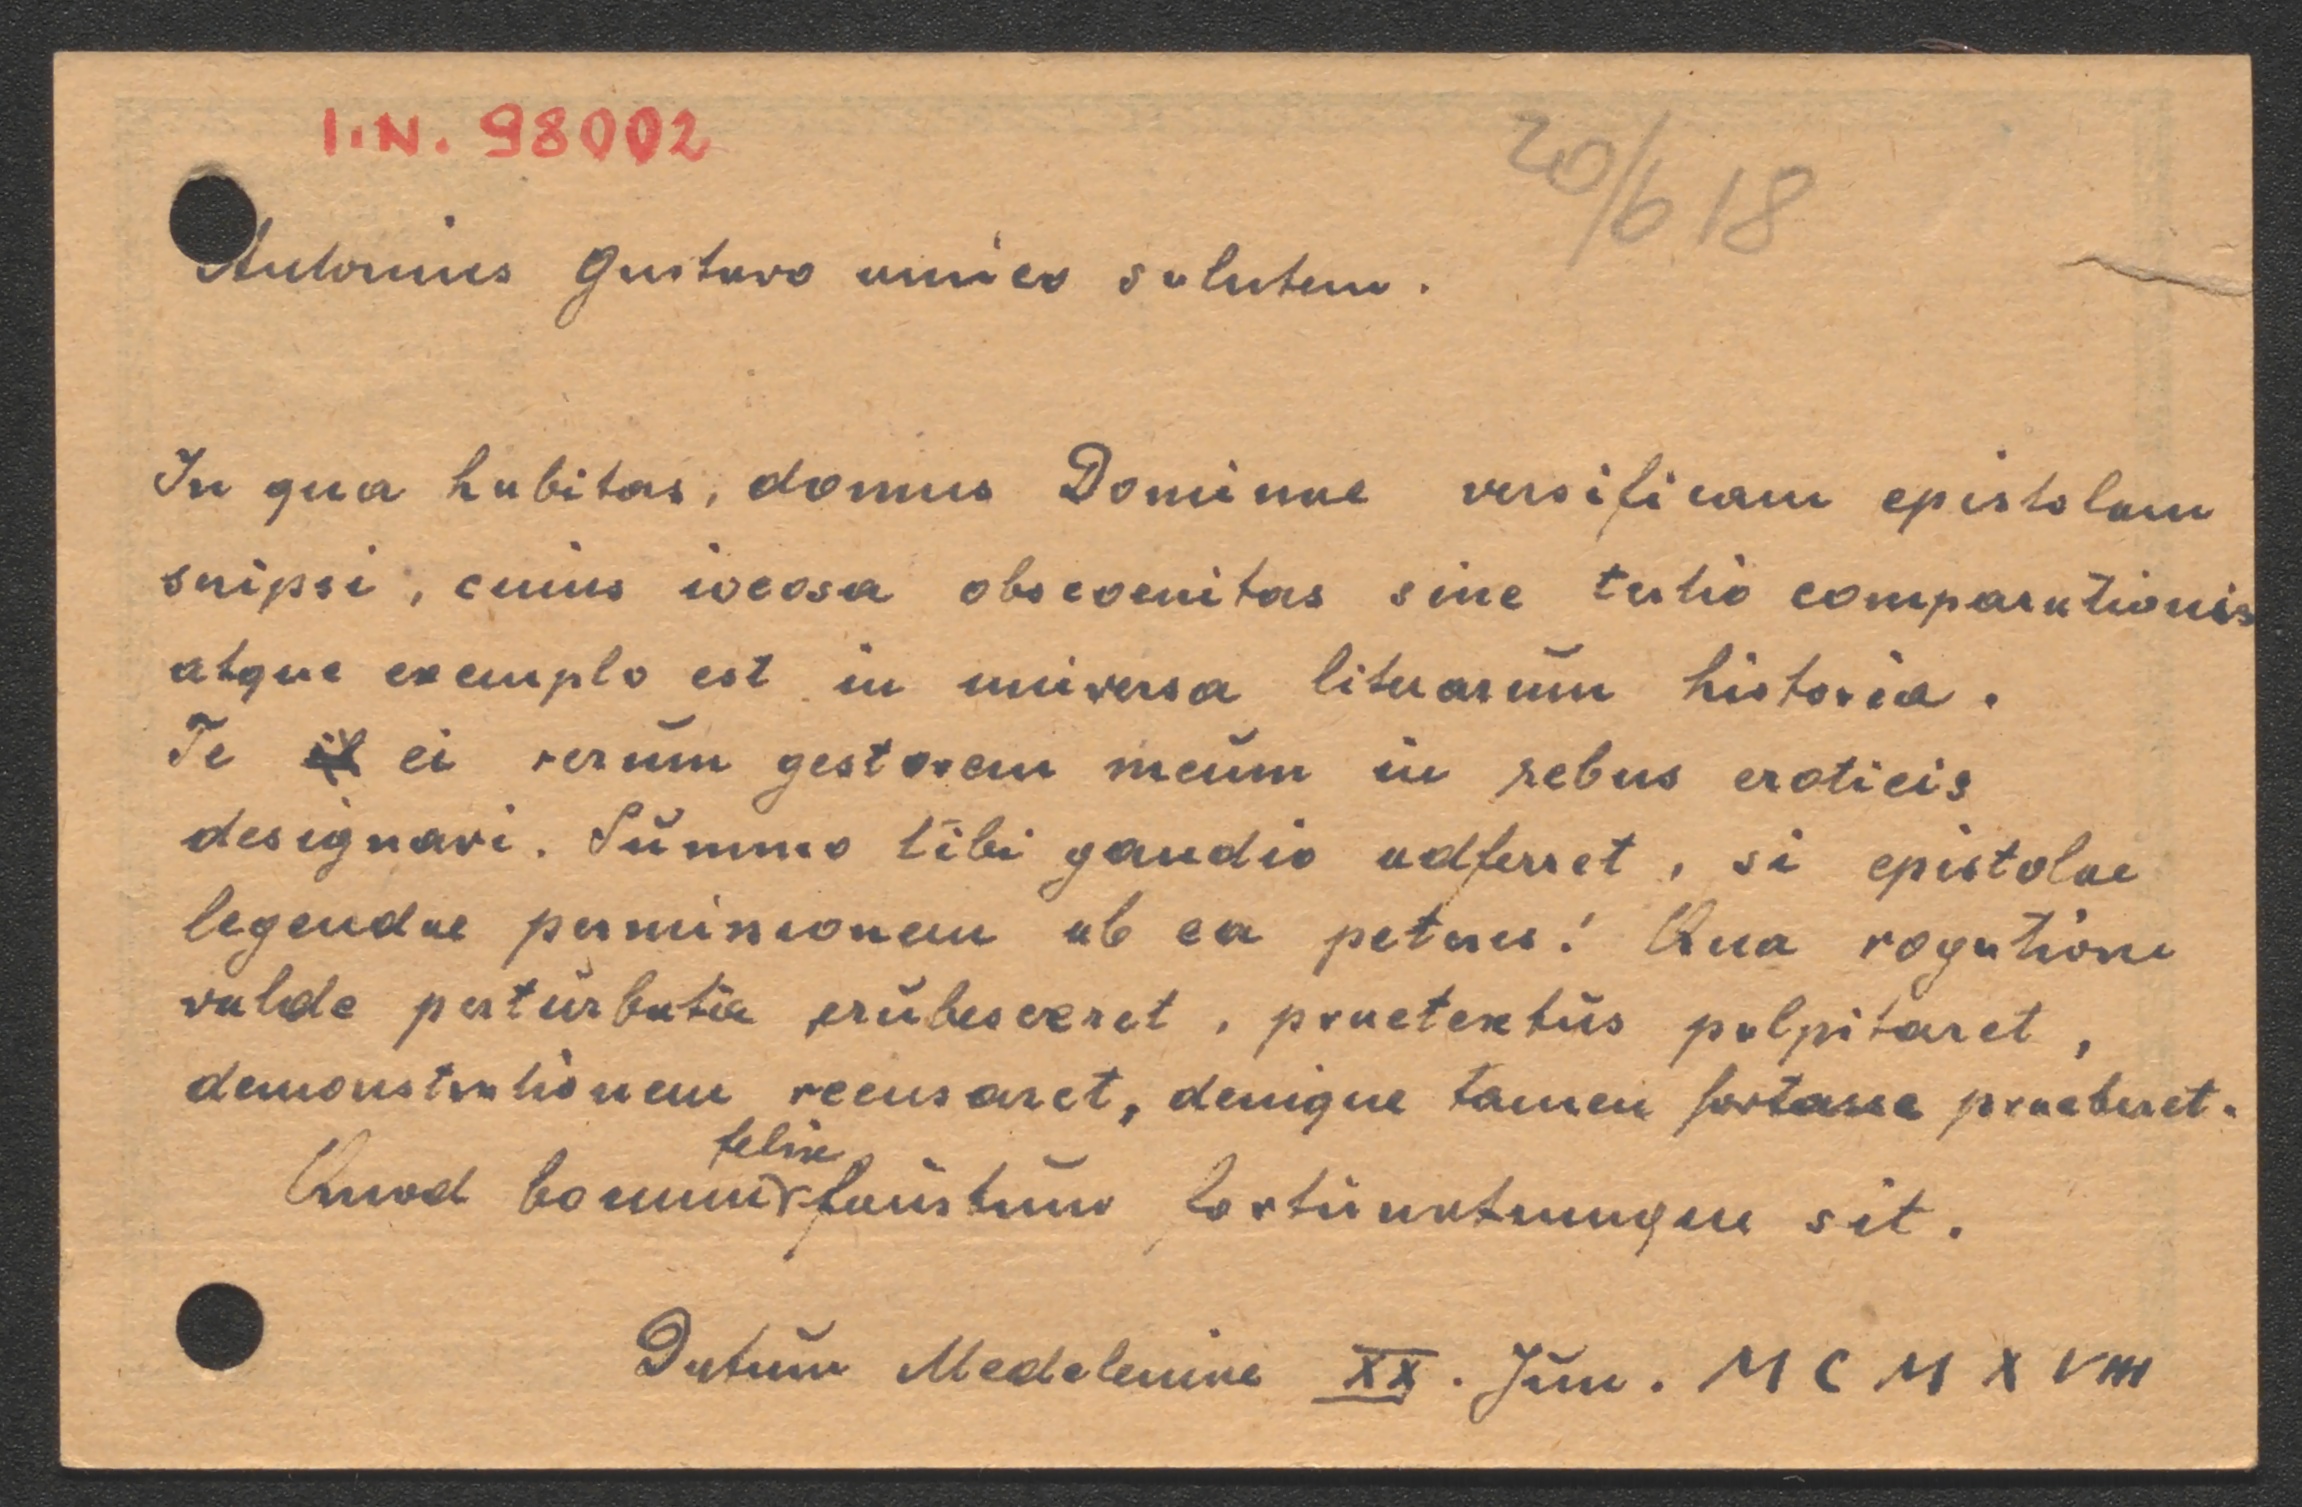 I.N. 98002
20/6 18
Antonius Gustavo amico salutem.
In qua habitas, domus Dominae versificam epistolam
scripsi, cuius iocosa obscoenitas sine tertio comparationis
atque exemplo est in universa literarum historia.
Te ei rerum gestorem meum in rebus eroticis
designavi. Summo tibi gaudio adferret, si epistolae
legendae permissionem ab ea peteres! Qua rogatione
valde perturbata erubesceret, praetextus palpitaret,
demonstrationem recusaret, denique tamen fortasse praeberet.
felix
Quod bonum faustum fortunatumque sit.
Datum XX. Jun. MCMXVIII